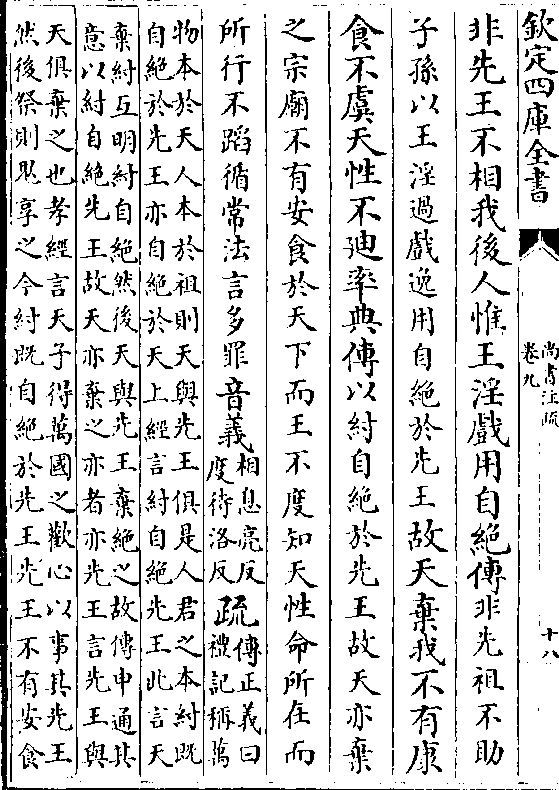 欽定四庫全書
尚書注疏
卷九
十八
非先王不相我後人惟王淫戲用自絕傳非先祖不助
子孫以王淫過戲逸用自絕於先王故天棄我不有康
食不虞天性不迪率典傳以紂自絕於先王故天亦棄
之宗廟不有安食於天下而王不度知天性命所在而
所行不蹈循常法言多罪音義相息亮反
度待洛反疏傳正義曰
禮記稱萬
物本於天人本於祖則天與先王俱是人君之本紂既
自絕於先王亦自絕於天上經言紂自絕先王此言天
棄紂互明紂自絕然後天與先王棄絕之故傳申通其
意以紂自絕先王故天亦棄之亦者亦先王言先王與
天俱棄之也孝經言天子得萬國之歡心以事其先王
然後祭則鬼享之今紂既自絕於先王先王不有安食